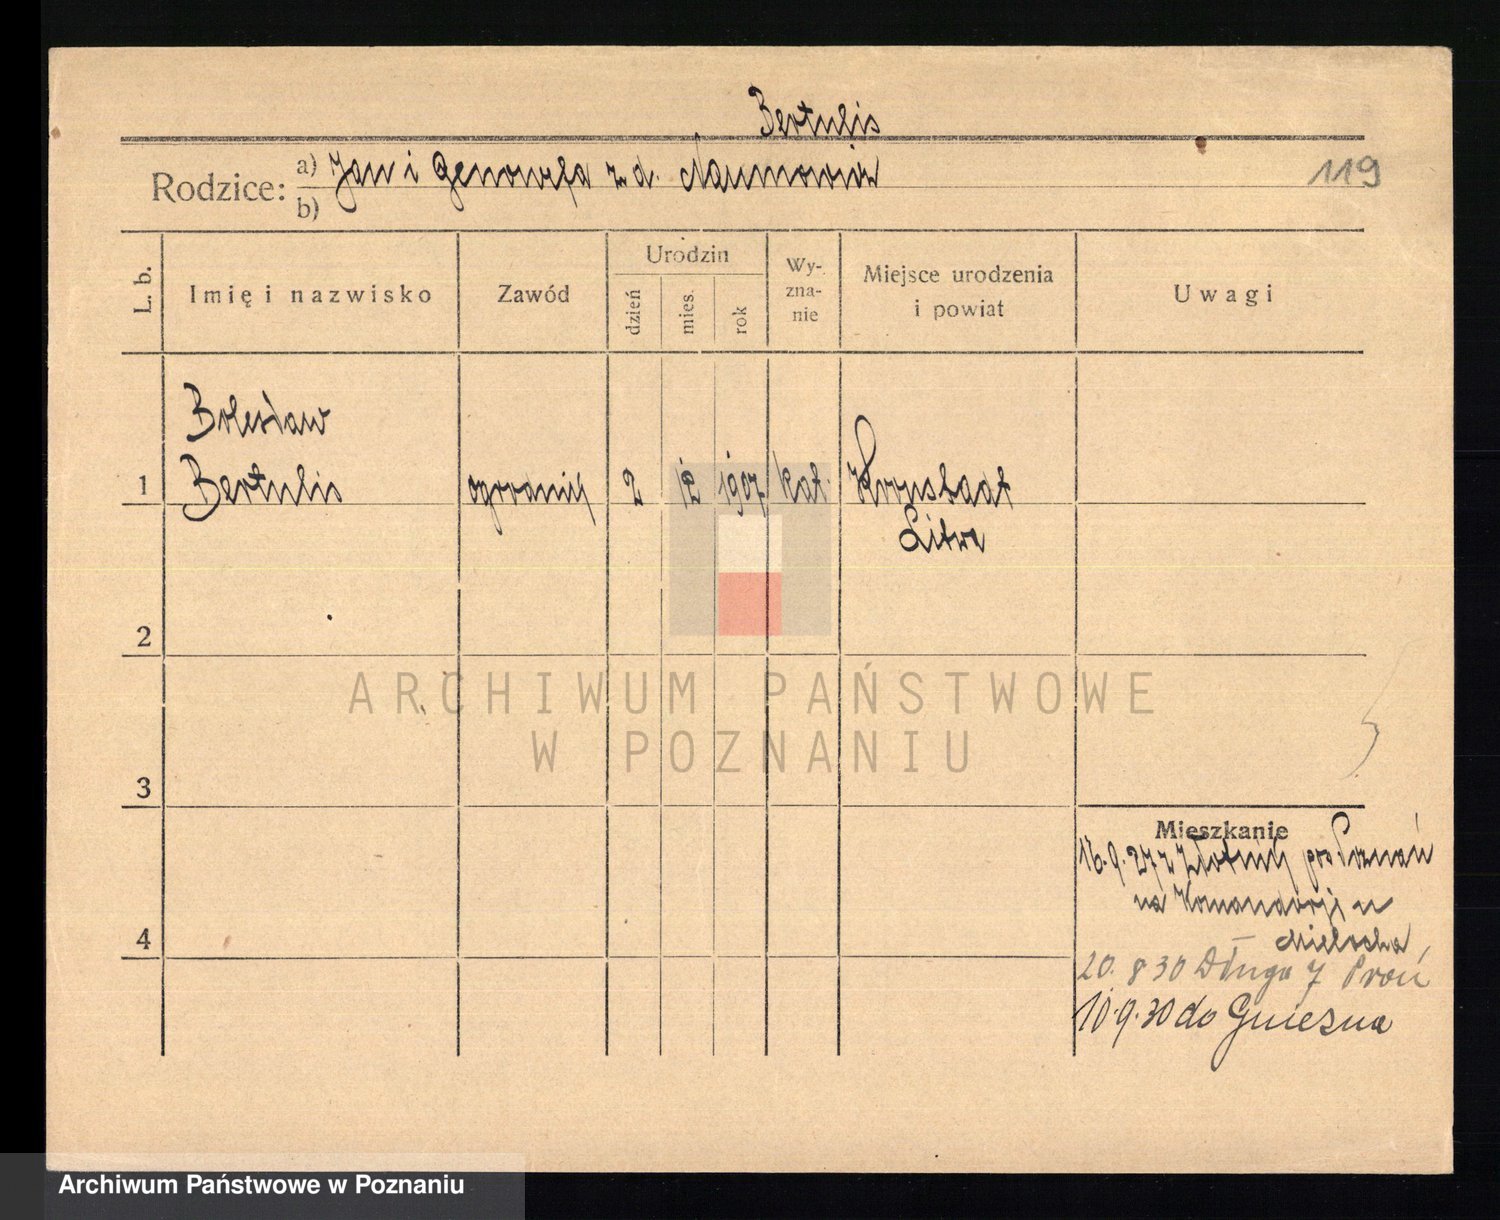 Bertulis
Rodzice: a) Jan i Genowefa z d. Naumowicz
b)
119
L. b.
Imię i nazwisko
Zawód
Urodzin
dzień
mies.
rok
Wy-
zna-
nie
Miejsce urodzenia
i powiat
Uwagi
Bolesław
1 Bertulis ogrodnik 2 12 1907 kat.
Litwa
2
ARCHIWUM PAŃSTWOWE
W POZNANIU
3
Mieszkanie
16.9.27 z Złotnik pow Poznań
na Komandorji u
20. 8 30 Długa 7
4
10.9.30 do Gniezna
Archiwum Państwowe w Poznaniu